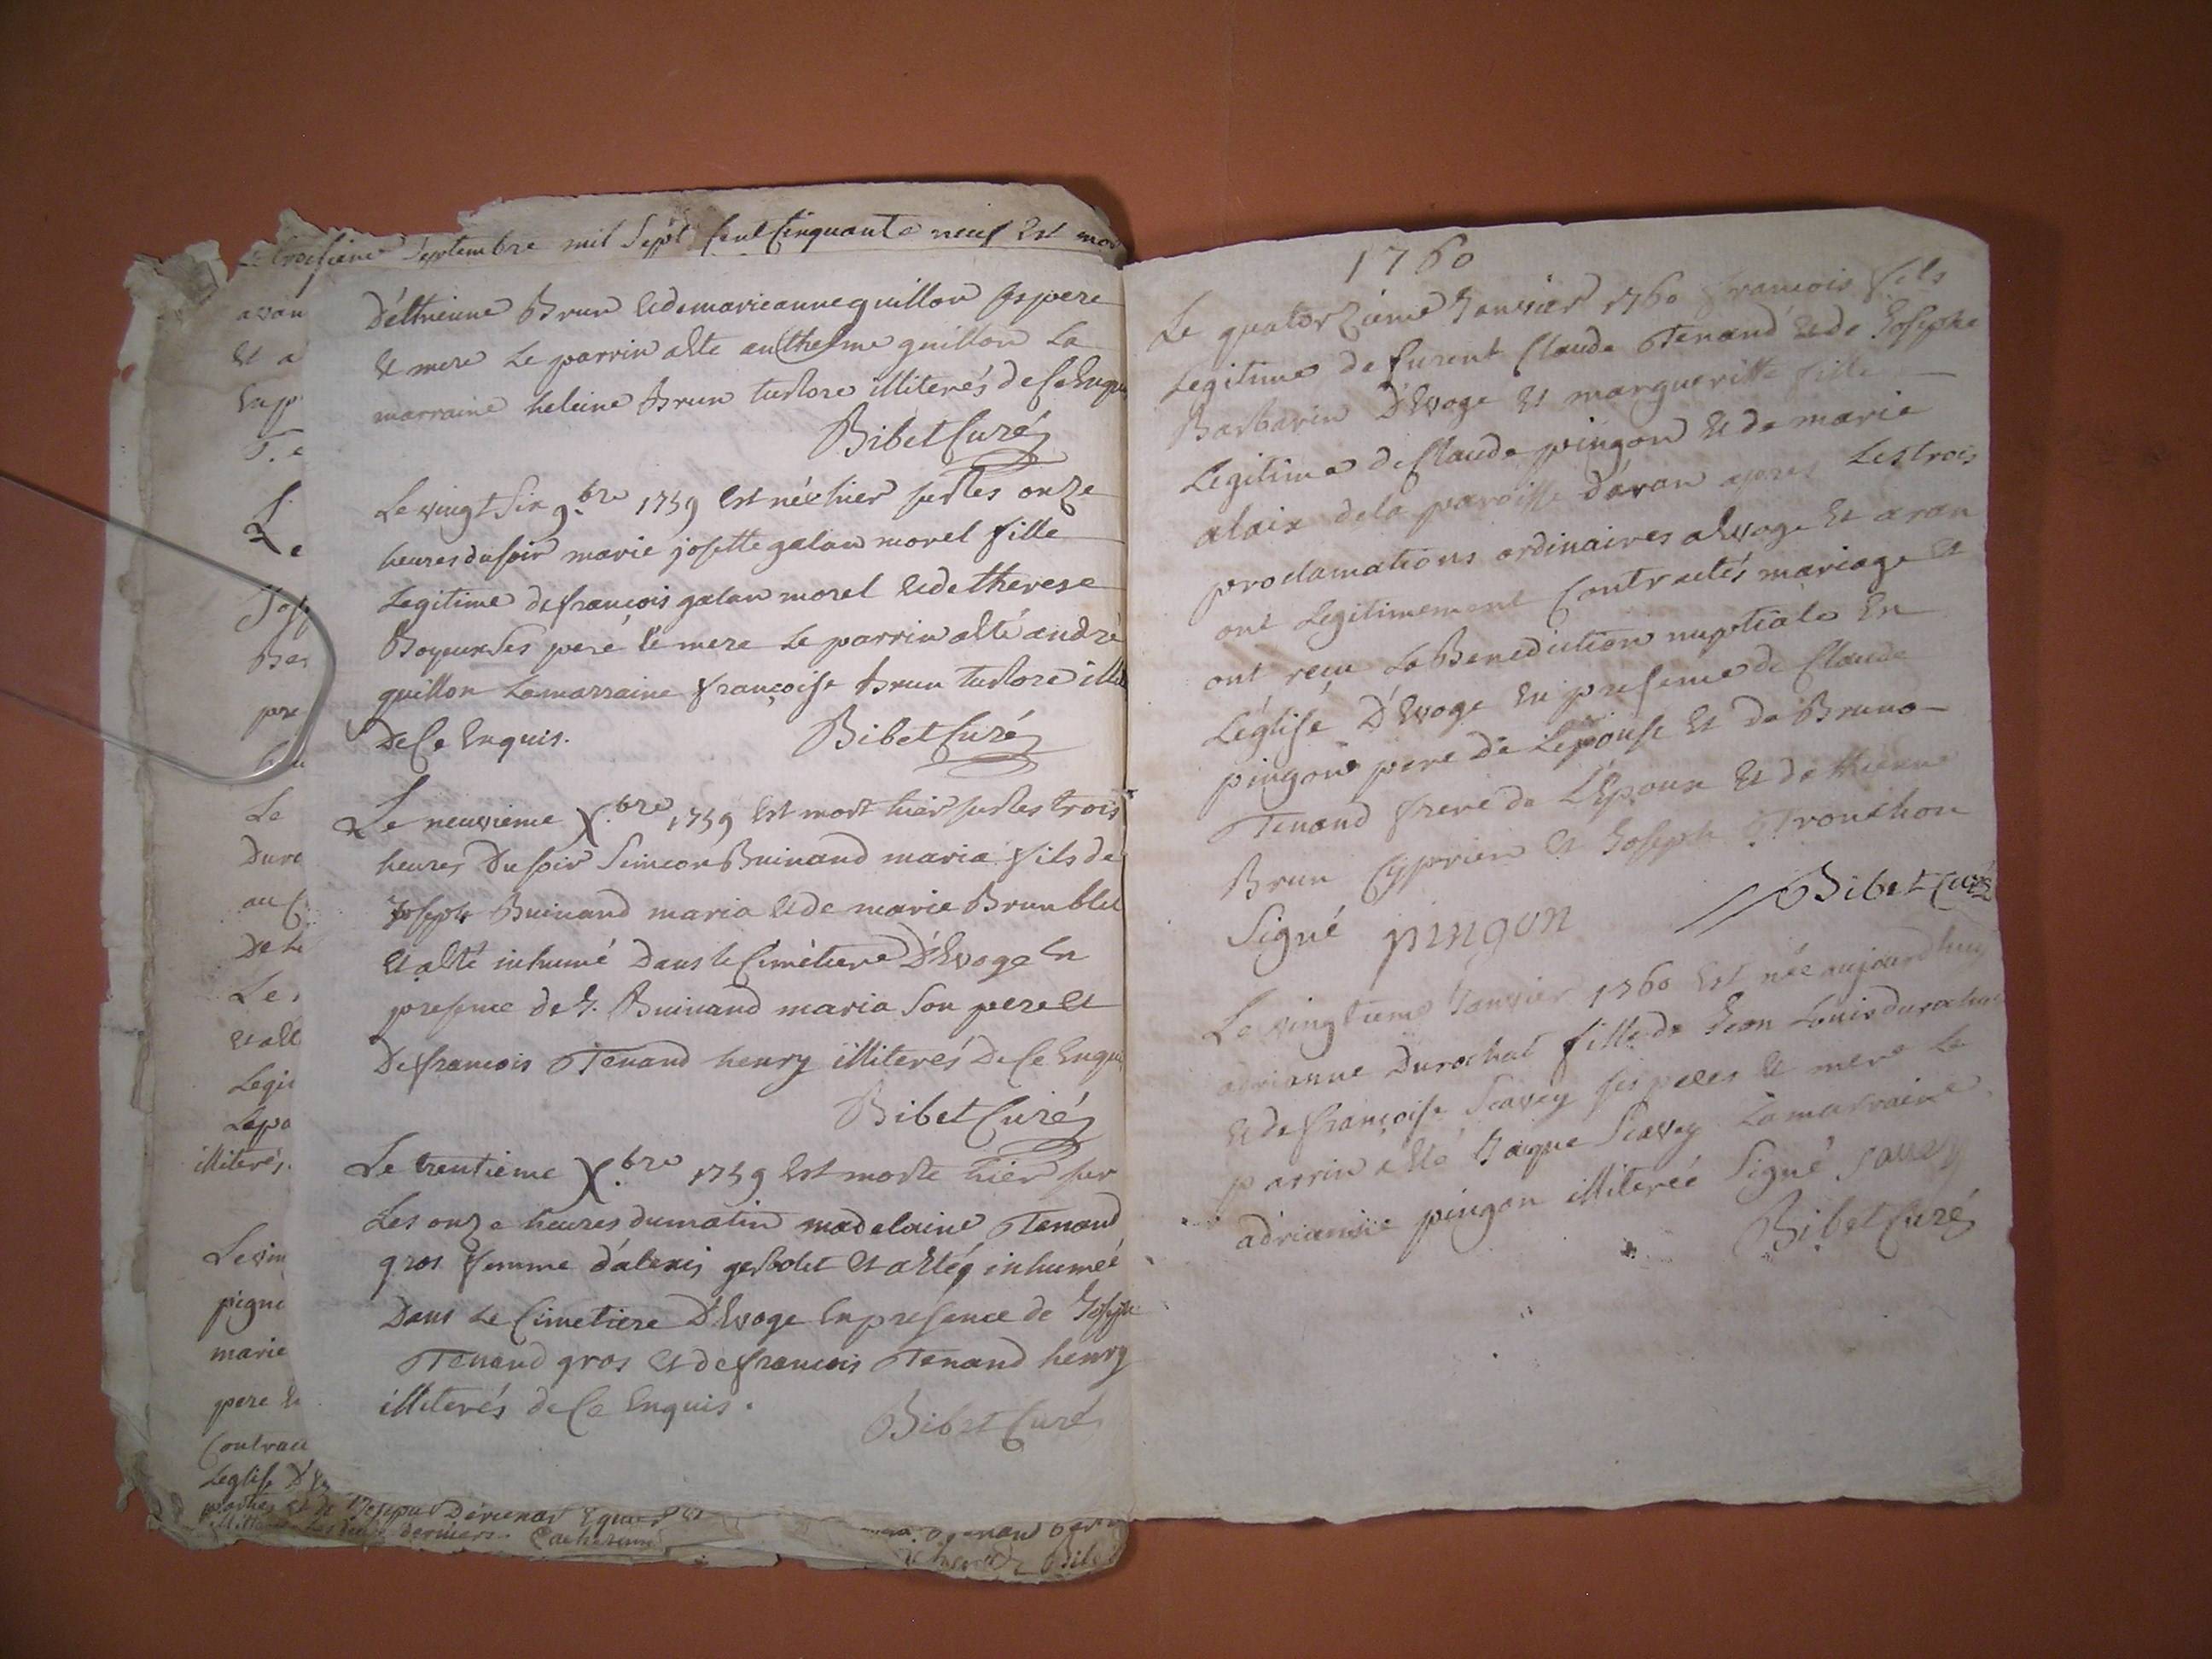 troisieme septembre mil sept cent cinquante neuf est mor
D'éthienne Brun et de marie anne guillon ses pere
et mere Le parrin a été anthelme guillon La
marraine heleine Brun tustore illiterés de ce Enquis
Bibet Curé
Le vingt six 9.bre 1759 est née hier sur les onze
heures du soir marie josette galan morel fille
Legitime de françois galan morel et de therese
Boyeux ses pere et mere Le parrin a été andré
guillon La marraine françoise Brun tustore
De Ce Enquis. Bibet Curé
Le neuvieme X.bre 1759 est mort hier sur les trois
heures Du soir Simeon Buinand maria fils de
Joseph Buinand maria et de marie Brun blet
et a été inhumé Dans le Cimétiere D'Evoge En
presence de J. Buinand maria son pere et
De françois Tenand henry illiterés De Ce Enquis
Bibet Curé
Le trentieme X.bre 1759 est morte hier sur
Les onze heures du matin madelaine Tenand
gros femme d'alexis gesbolet et a été inhumeé
Dans Le Cimetiere D'Evoge En presence de Joseph
Tenand gros et de françois Tenand henry
illiterés de Ce Enquis.
Bibet Curé
avan
Et a
Enp
Le
Jos
Bar
pre
Le
Dure
au C
De L
Le
et a ét
Legi
Lepa
illiterés.
Le vin
pigne
marie
pere
Contract
Leglise
derniers.
1760
Le quatorzieme Janvier 1760 francois fils
Legitime de furent Claude Tenand et de Josephe
Barbarin D'Evoge et margueritte fille
Legitime de Claude pingon et de marie
alaix de la paroisse d'aran apres Les trois
proclamations ordinaires a Evoge et aran
ont Legitimement Contractés mariage et
ont reçu La Benediction nuptiale En
L'église D'Evoge En presence de Claude
pingon pere de L'épouse et de Bruno
Tenand frere de L'Epoux et de thienne
Brun Cyprien et Joseph Tronchon
Signé pingon Bibet Curé
Le vingtieme Janvier 1760 est née aujourdhuy
adrianne Durochat fille de Jean Louis durochat
et de françoise Savey ses peres et mere Le
parrin a été Jaque Savey La marraine
adrianne pingon illiteréé Signé savey
Bibet Curé